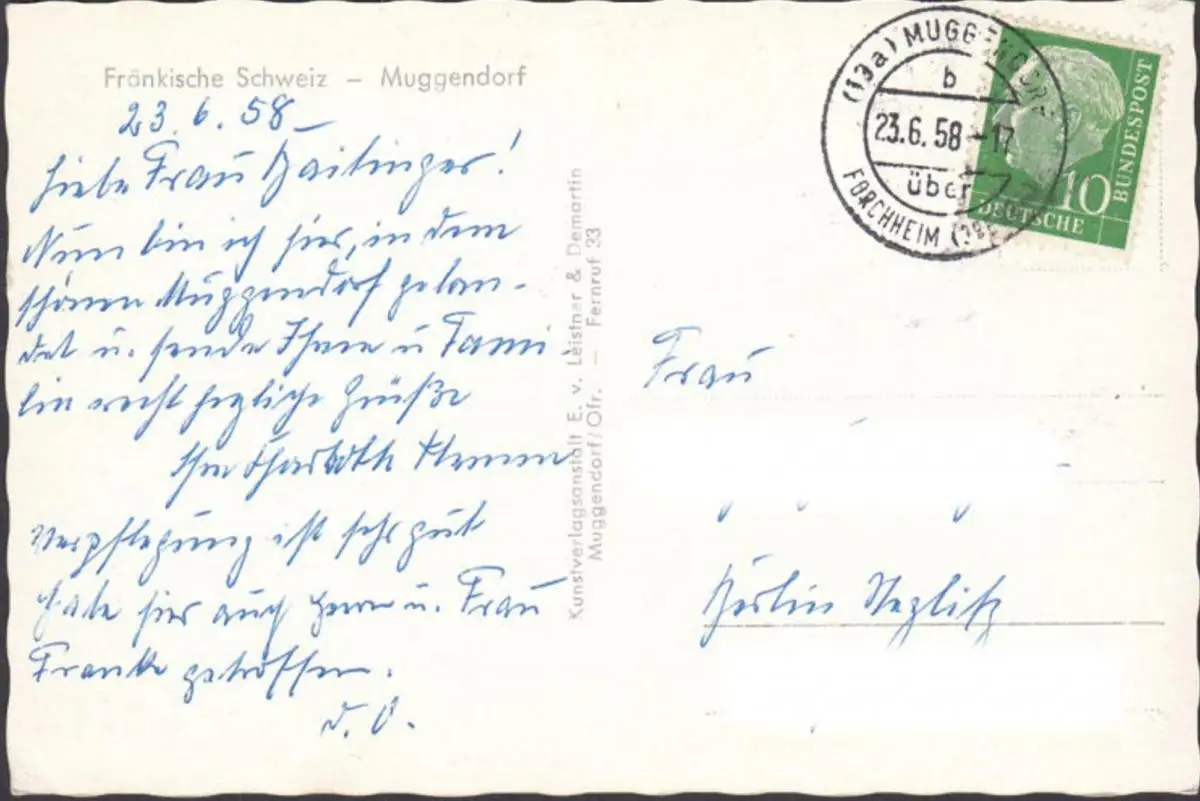 Fränkische Schweiz – Muggendorf
23.6.58
Liebe Frau Haitinger!
Nun bin ich hier, in dem
schönen Muggendorf gelan-
det u. sende Ihnen u Fami-
lie recht herzliche Grüße
Ihre Charlotte
Verpflegung ist sehr gut
habe hier auch Herrn u. Frau
Franke getroffen.
d. O.
Kunstverlagsanstalt E. v. Leistner & Demartin
Muggendorf/Ofr. – Fernruf 33
(13a) MUGGENDORF
b
23.6.58-17
über
FORCHHEIM
10
DEUTSCHE
BUNDESPOST
Frau
Berlin Steglitz